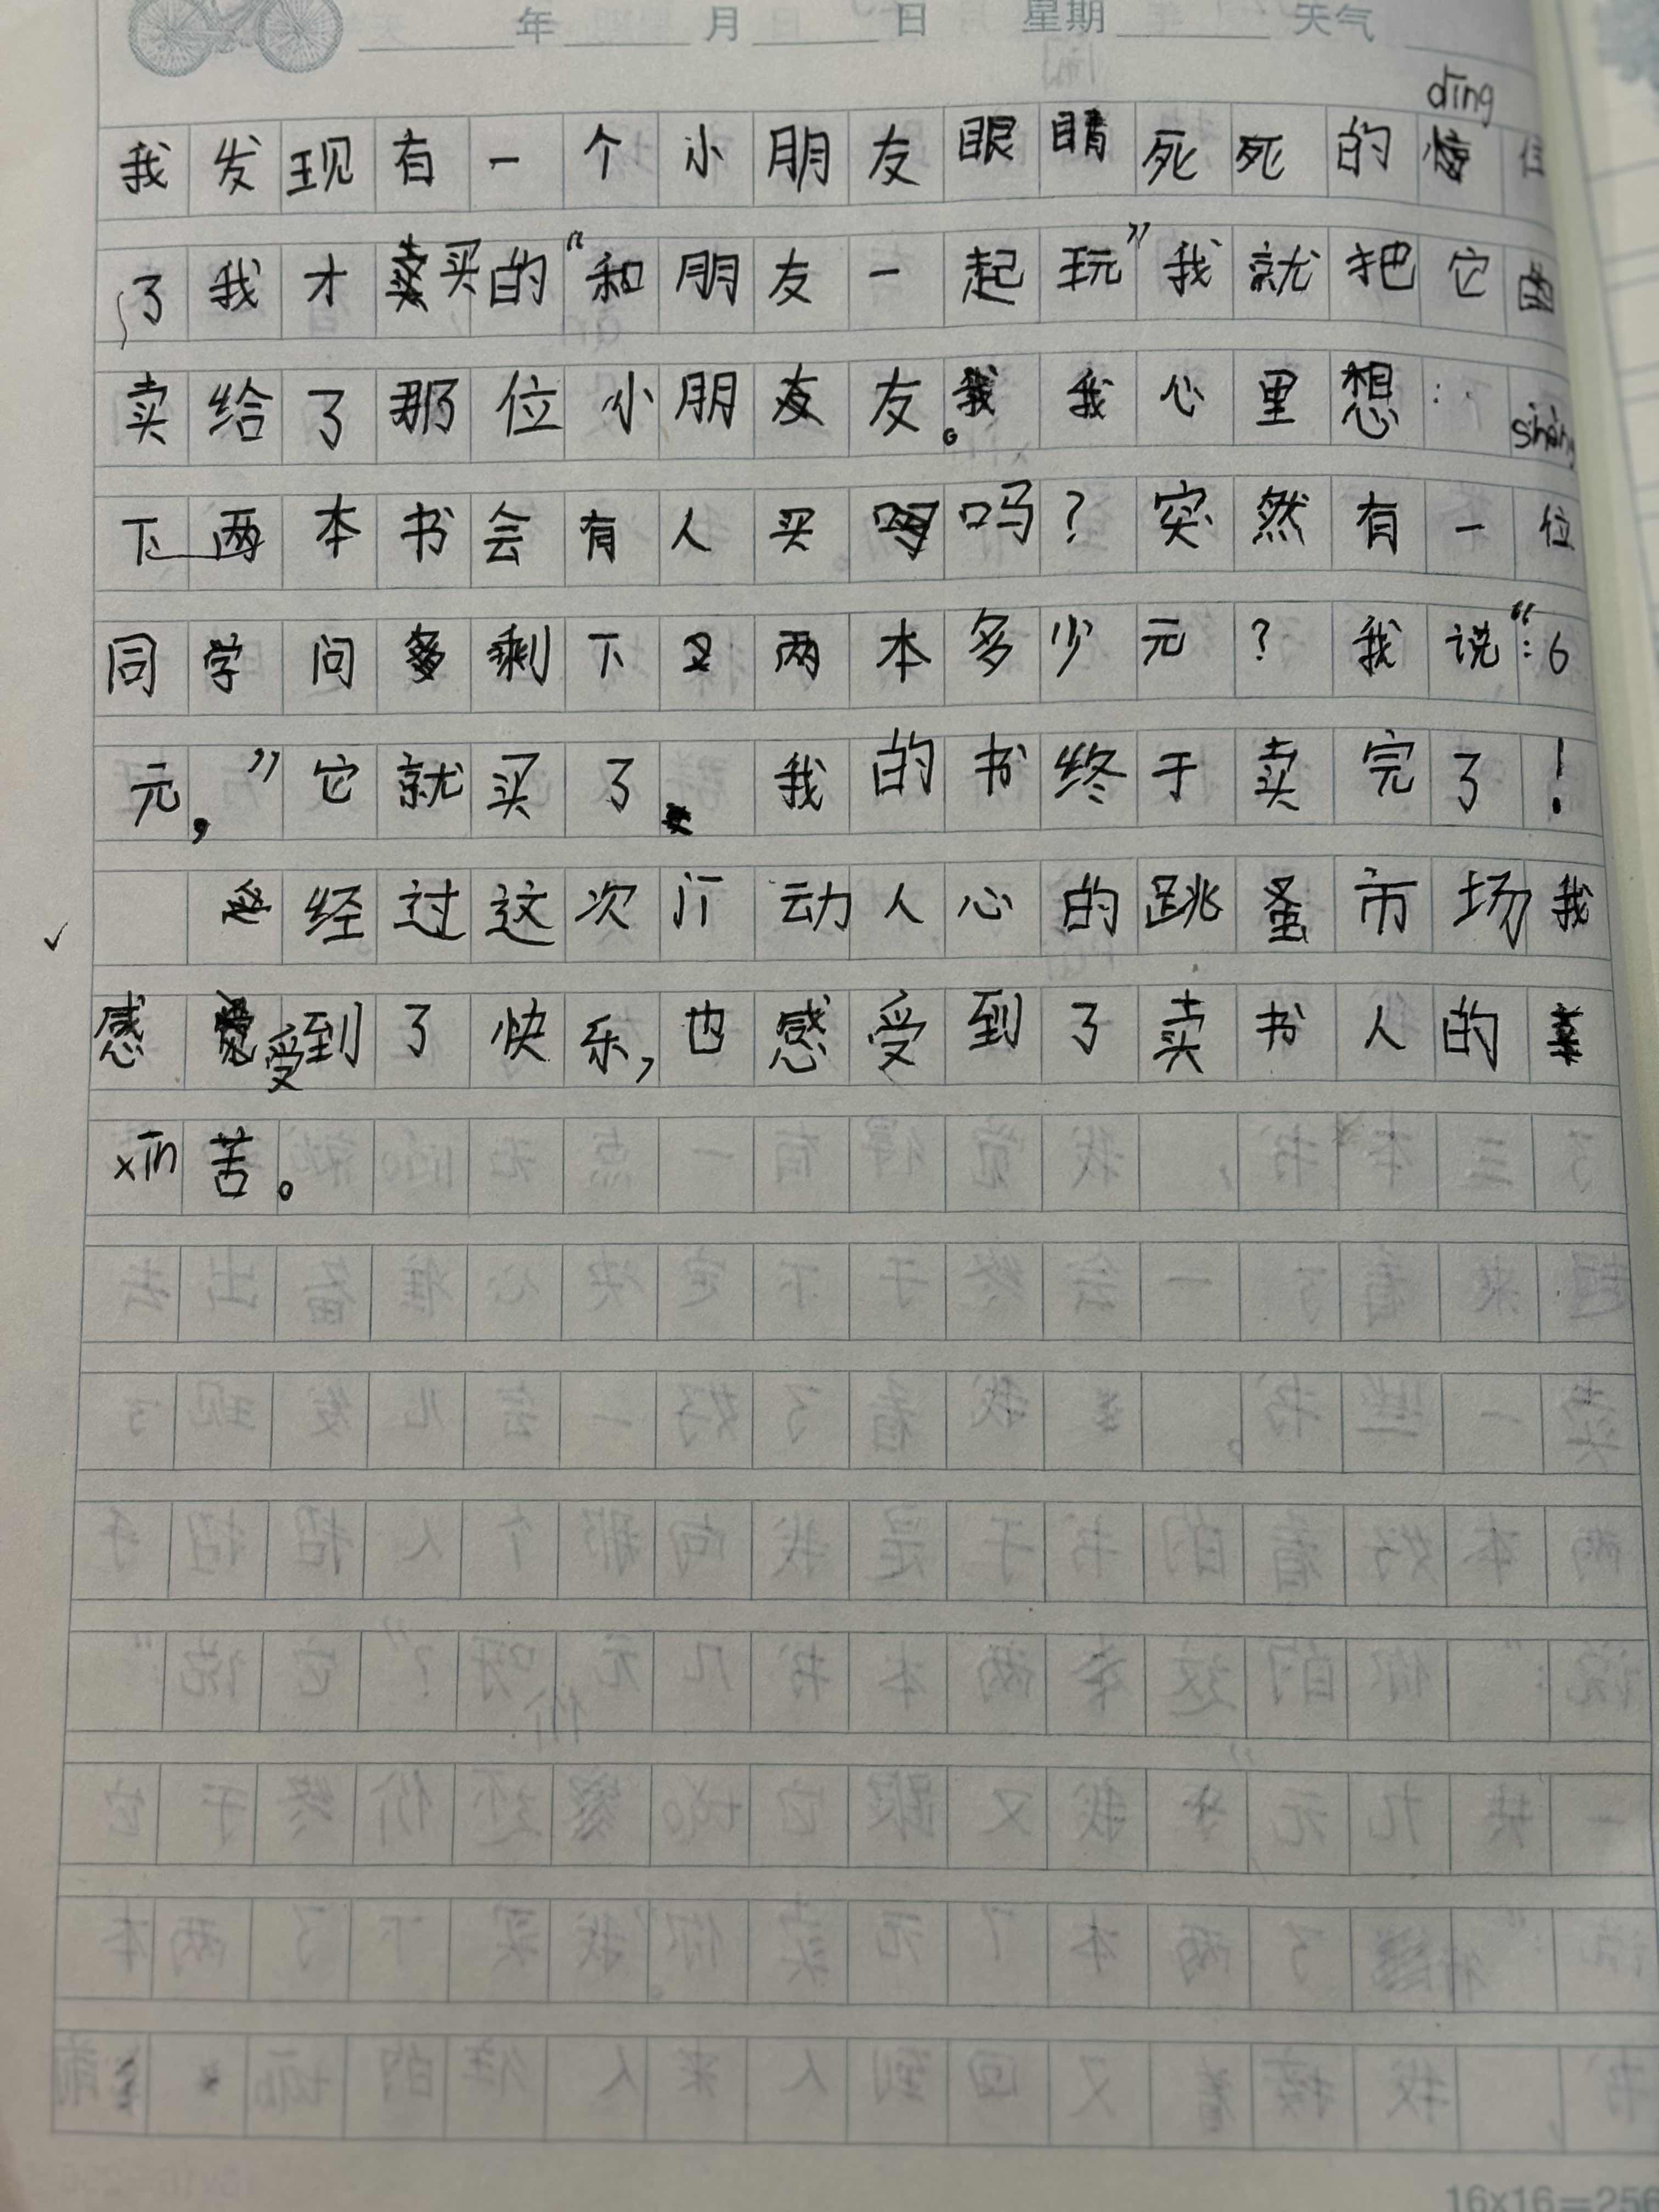 年 月 日 星期 天气
dīng
我发现有一个小朋友眼睛死死的住
了我才买的“和朋友一起玩”我就把它
卖给了那位小朋友。我心里想：shèng
下两本书会有人买吗？突然有一位
同学问剩下两本多少元？我说：“6
元，”它就买了 我的书终于卖完了！
经过这次行动人心的跳蚤市场我
感受到了快乐，也感受到了卖书人的
xīn苦。
16x16=256